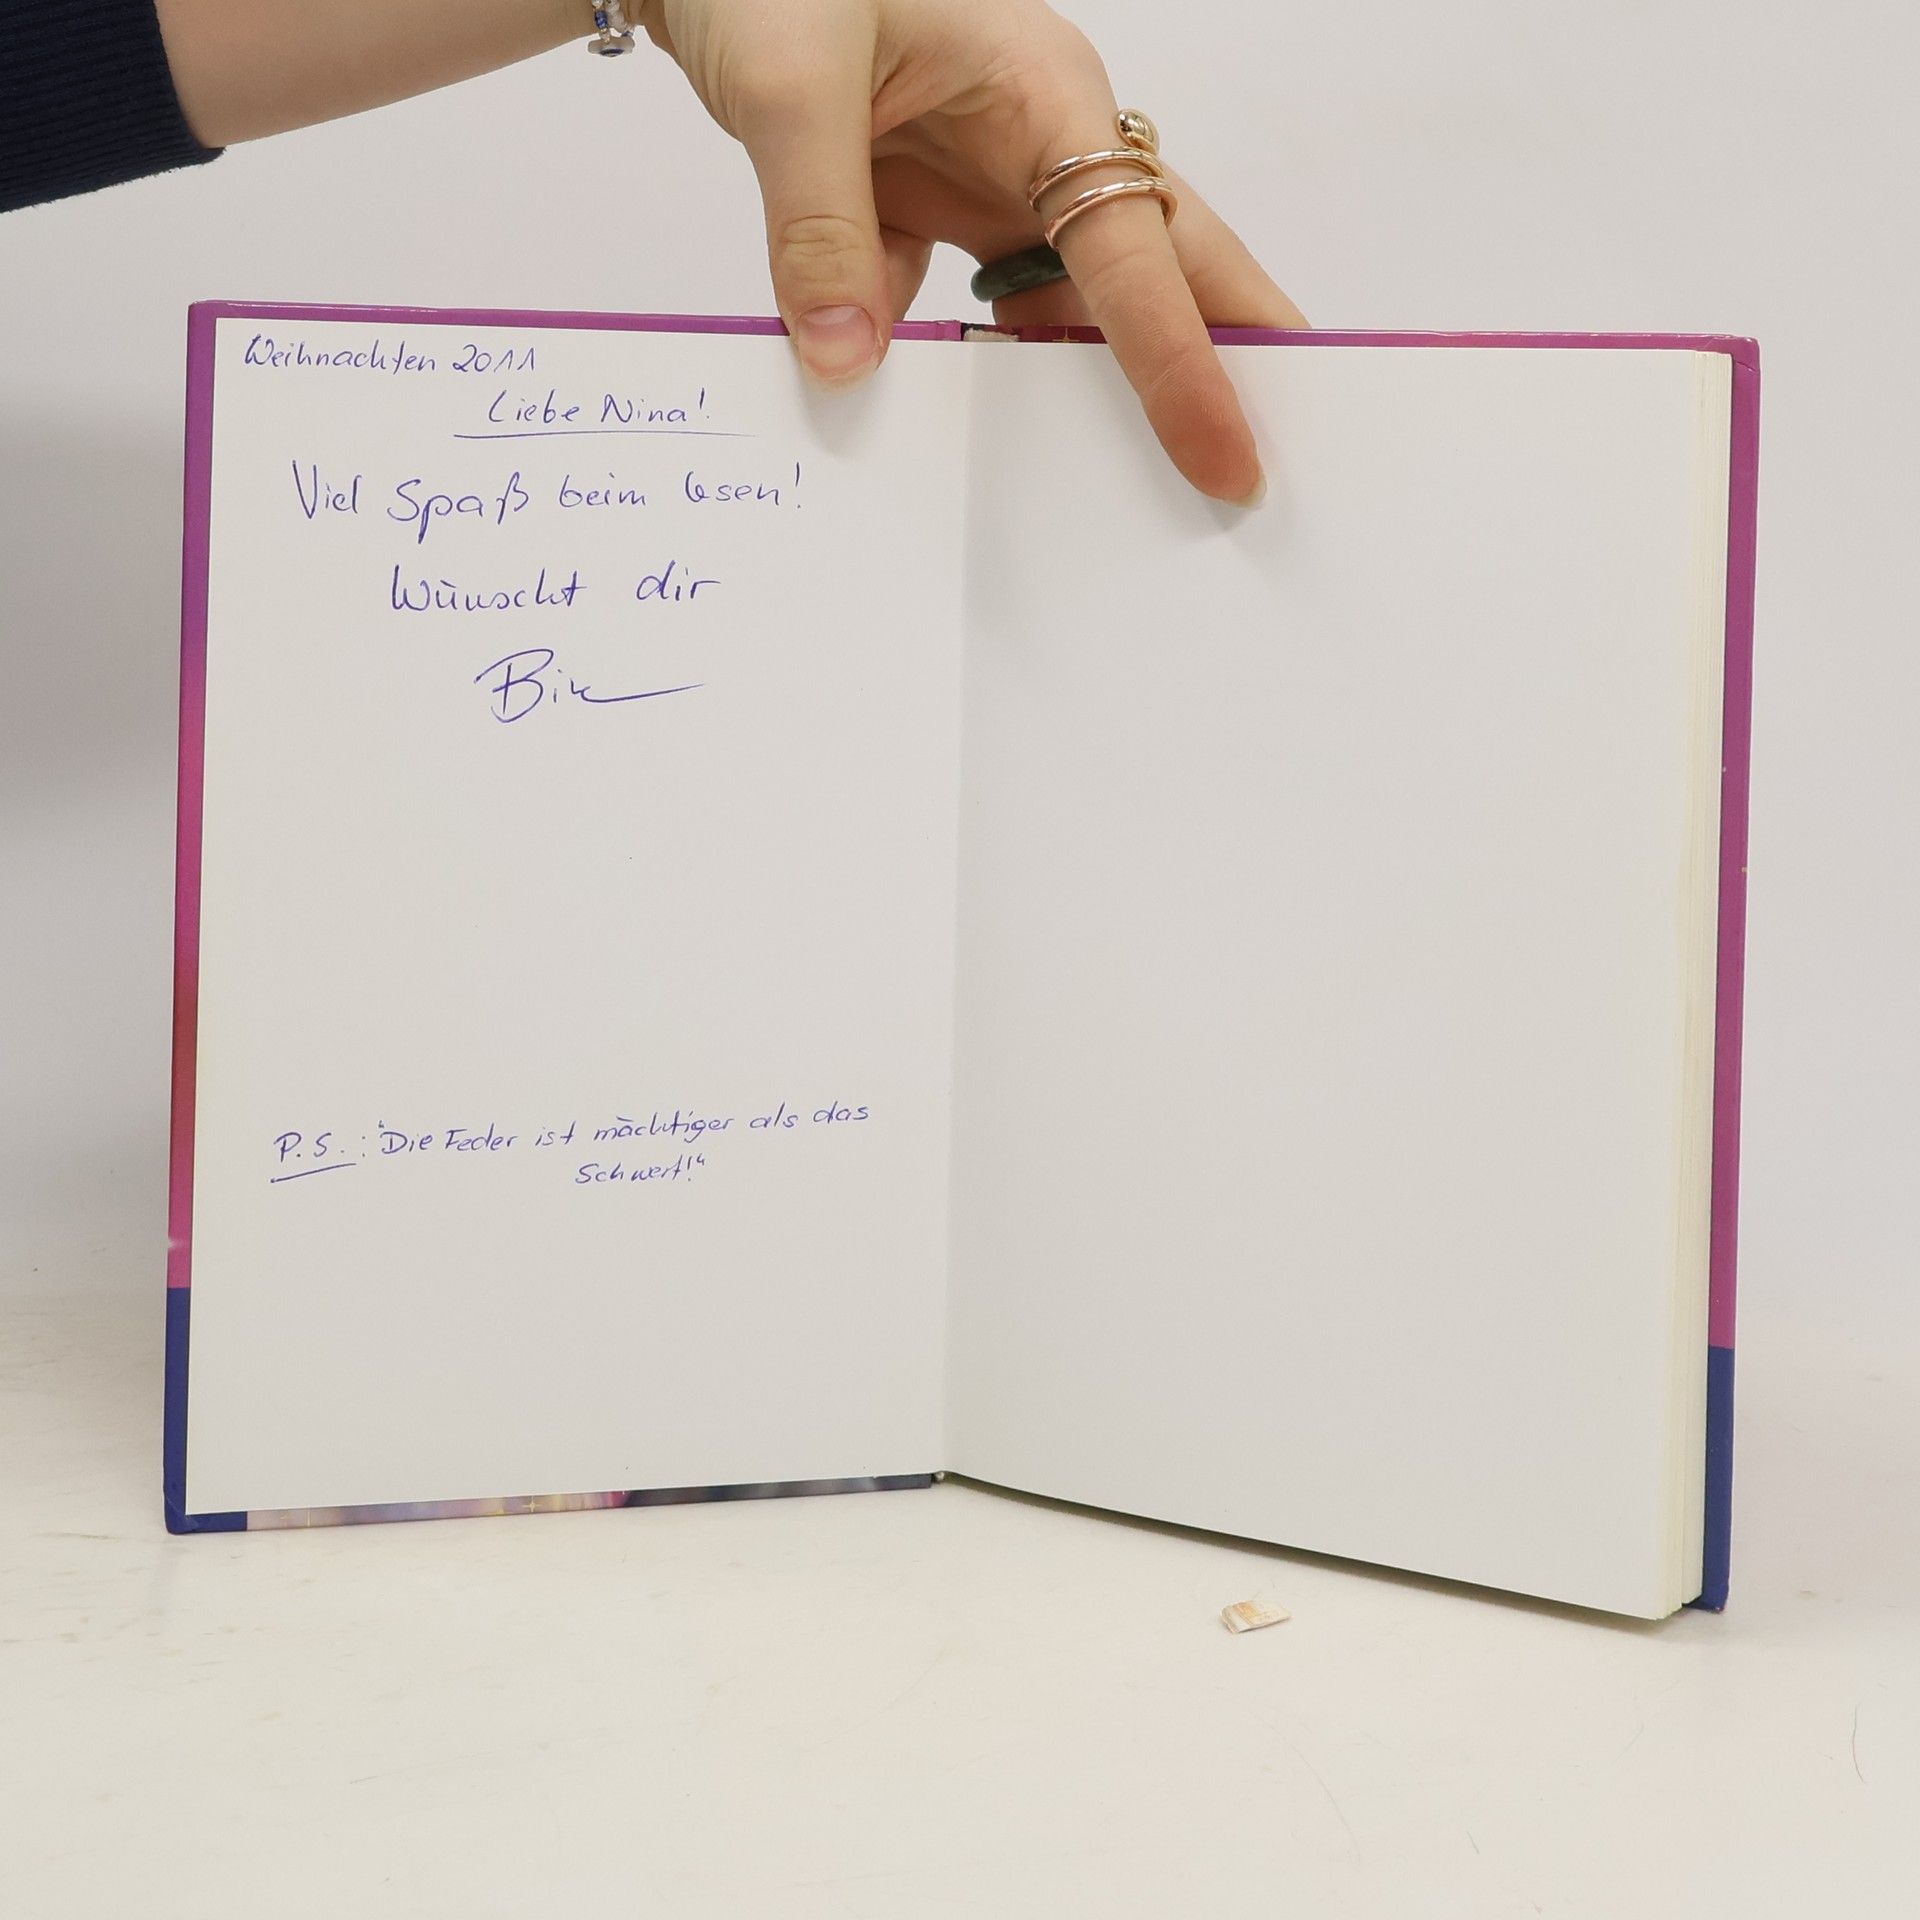 Weihnachten 2011
Liebe Nina!
Viel Spaß beim lesen!
Wünscht dir
P.S.: "Die Feder ist mächtiger als das
Schwert!"